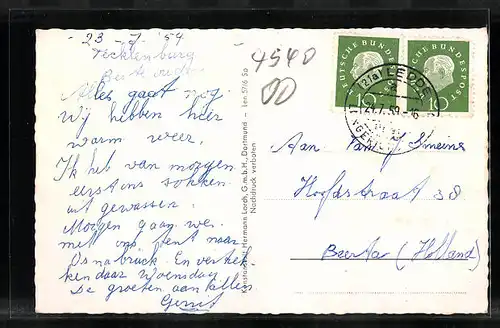 23-7-59
Tecklenburg
Beste ouders
Alles gaat nog.
Wy hebben hier
warm weer.
Ik heb van morgen
eerst ons sokken
uit gewassen.
Morgen gaan we
met ons tent naar
Osnabrück. En vertrek
ken daar Woensdag
De groeten aan allen
Gerrit
4540
Kunstanstalt Hermann Lorch, G.m.b.H., Dortmund - Ten 57/6 So
Nachdruck verboten
DEUTSCHE BUNDESPOST
10
DEUTSCHE BUNDESPOST
10
(21a) LEDDE
Aan Fam
Hoofdstraat 38
Beerta (Holland)